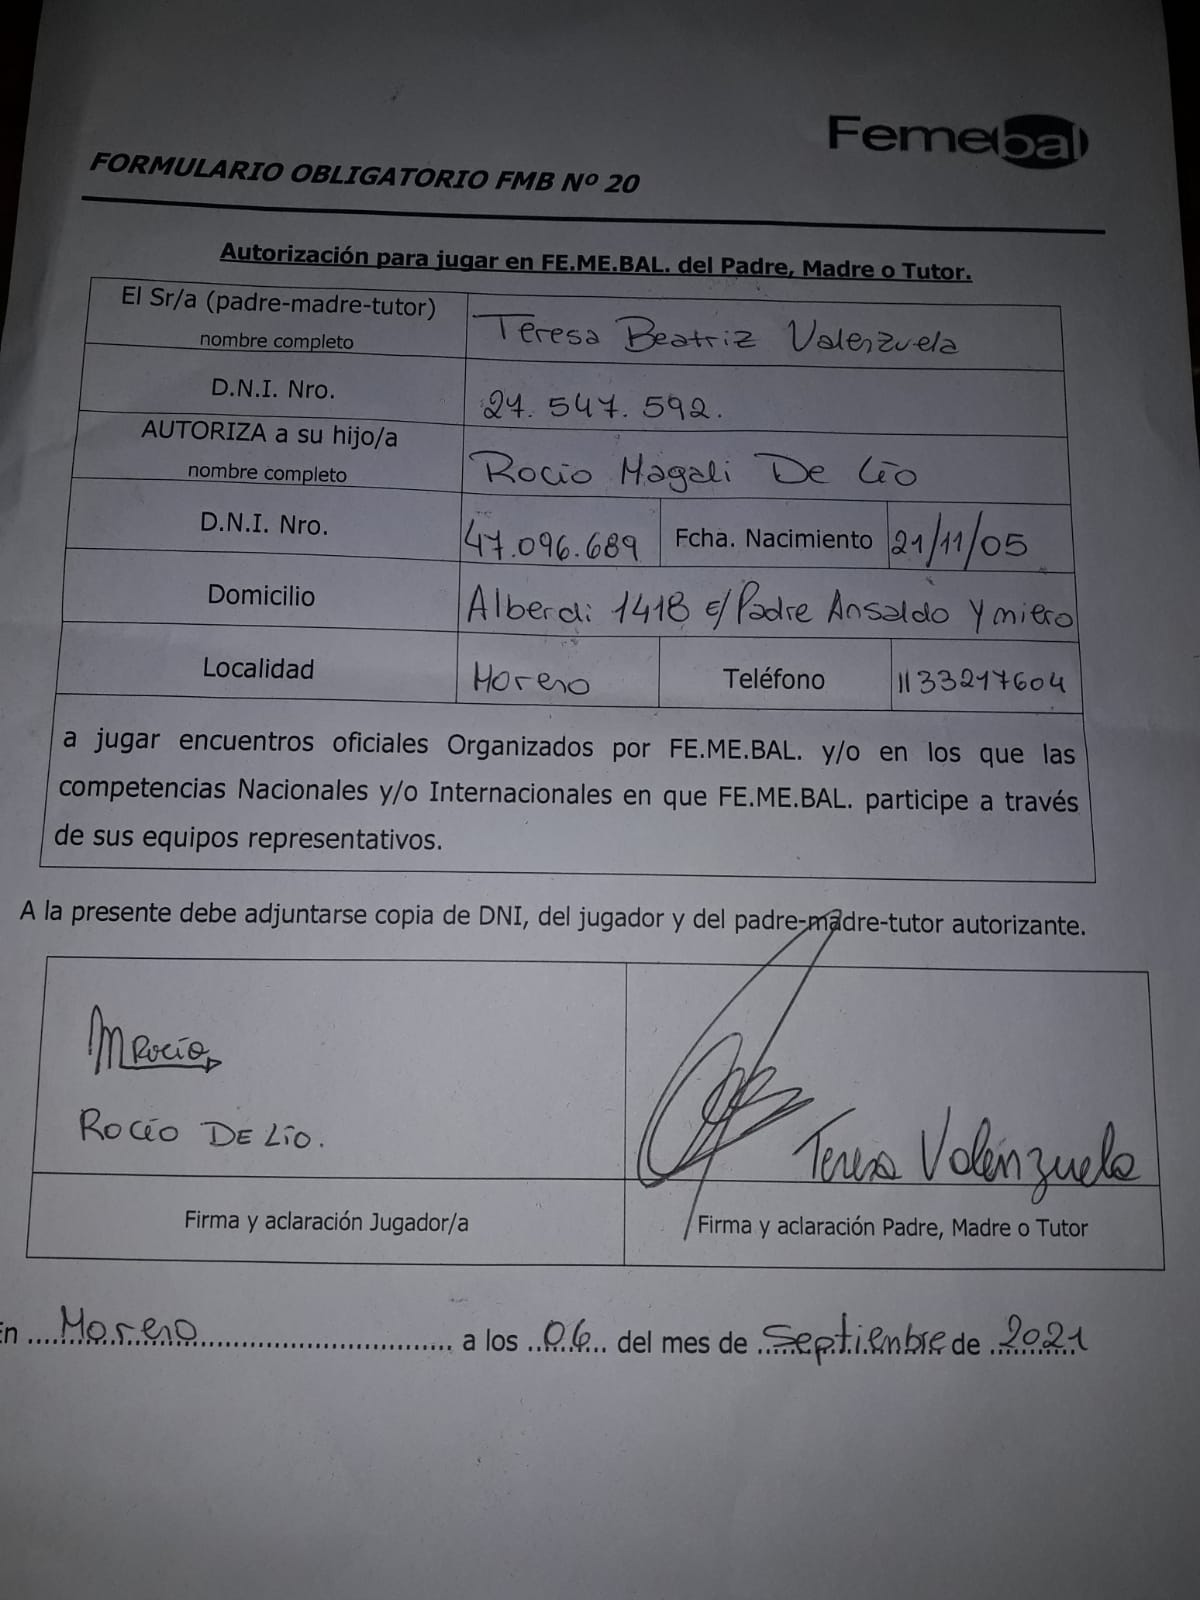 Femebal
FORMULARIO OBLIGATORIO FMB Nº 20
Autorización para jugar en FE.ME.BAL. del Padre, Madre o Tutor.
El Sr/a (padre-madre-tutor)
nombre completo
Teresa Beatriz Valenzuela
D.N.I. Nro.
27.547.592.
AUTORIZA a su hijo/a
nombre completo
Rocio Magali De Lío
D.N.I. Nro.
47.096.689
Fcha. Nacimiento
21/11/05
Domicilio
Alberdi 1418 e/Padre Ansaldo y
Localidad
Moreno
Teléfono
1133217604
a jugar encuentros oficiales Organizados por FE.ME.BAL. y/o en los que las
competencias Nacionales y/o Internacionales en que FE.ME.BAL. participe a través
de sus equipos representativos.
A la presente debe adjuntarse copia de DNI, del jugador y del padre-madre-tutor autorizante.
MRocío
Rocío De Lío.
Teresa Valenzuela
Firma y aclaración Jugador/a
Firma y aclaración Padre, Madre o Tutor
En Moreno a los 06 del mes de Septiembre de 2021